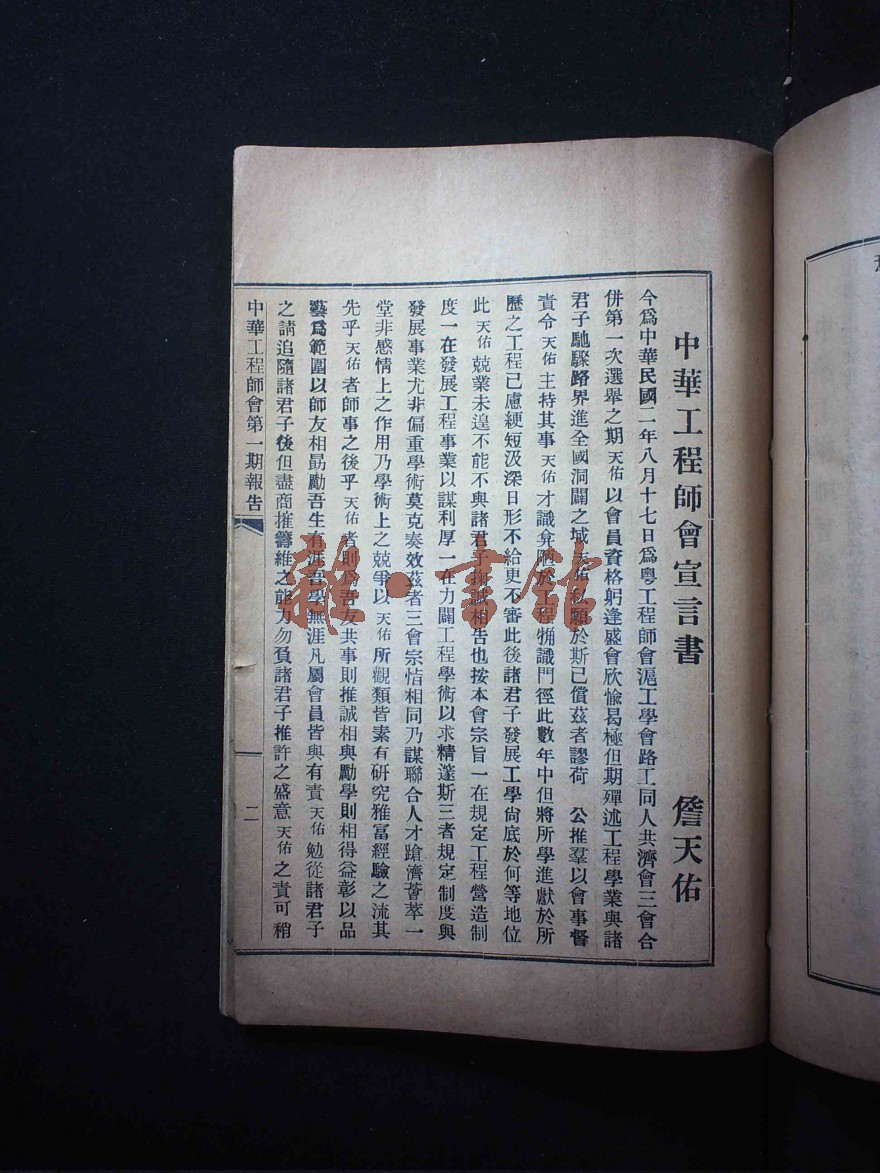 中華工程師會宣言書 詹天佑
今爲中華民國二年八月十七日爲粵工程師會滬工學會路工同人共濟會三會合
併第一次選舉之期天佑以會員資格躬逢盛會欣愉曷極但期殫述工程學業與諸
君子馳驟路界進全國洞闢之域天佑私願於斯已償茲者謬荷 公推羣以會事督
責令天佑主持其事天佑才識弇陋於工程犕識門徑此數年中但將所學進獻於所
歷之工程已慮綆短汲深日形不給更不審此後諸君子發展工學尙底於何等地位
此天佑兢業未遑不能不與諸君子掬誠相告也按本會宗旨一在規定工程營造制
度一在發展工程事業以謀利厚一在力闢工程學術以求精邃斯三者規定制度與
發展事業尤非偏重學術莫克奏效茲者三會宗恉相同乃謀聯合人才蹌濟薈萃一
堂非感情上之作用乃學術上之兢爭以天佑所觀類皆素有硏究雅富經驗之流其
先乎天佑者師事之後乎天佑者則爲吾友共事則推誠相與勵學則相得益彰以品
藝爲範圍以師友相勗勵吾生有涯吾學無涯凡屬會員皆與有責天佑勉從諸君子
之請追隨諸君子後但盡商搉籌維之能力勿負諸君子推許之盛意天佑之責可稍
中華工程師會第一期報告 二
雜·書館